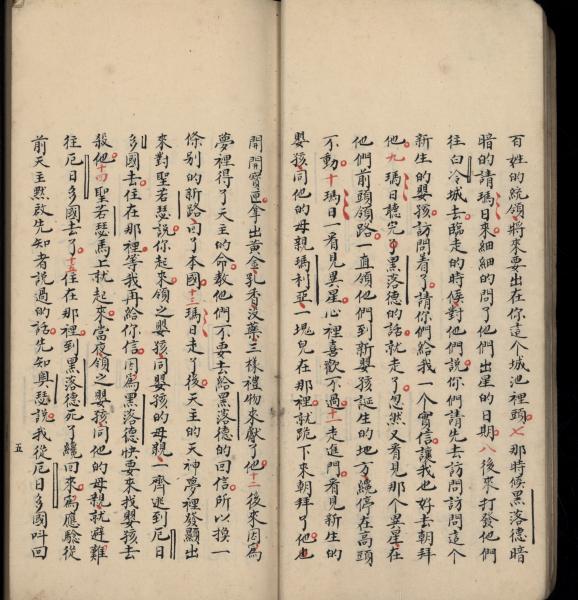 百姓的統領將來要出在你這个城池裡頭七那時候黑落德暗
暗的請瑪日來細細的問了他們出星的日期八後來打發他們
往白冷城去臨走的時候對他們說你們請先去訪問訪問這个
新生的嬰孩訪問着了請你們給我一个實信讓我也好去朝拜
他九瑪日聽完了黑落德的話就走了忽然又看見那个異星在
他們前頭領路一直領他們到新嬰孩誕生的地方纔停在高頭
不動十瑪日一看見異星心裡喜歡不過十一走進門看見新生的
嬰孩同他的母親瑪利亞一塊兒在那裡就跪下來朝拜了他也
開開寶匣拿出黃金乳香没藥三樣禮物來獻了他十二後來因為
夢裡得了天主的命教他們不要去給黑落德的回信所以換一
條别的新路回了本國十三瑪日走了後天主的天神夢裡發顯出
來對聖若瑟說你起來領之嬰孩同嬰孩的母親一齊逃到厄日
多國去住在那裡等我再給你信因為黑落德快要來找嬰孩去
殺他十四聖若瑟馬上就起來當夜領之嬰孩同他的母親就避難
往厄日多國去了十五住在那裡到黑落德死了纔回來為應驗從
前天主默啟先知者說過的話先知奥瑟說我從厄日多國呌回
五